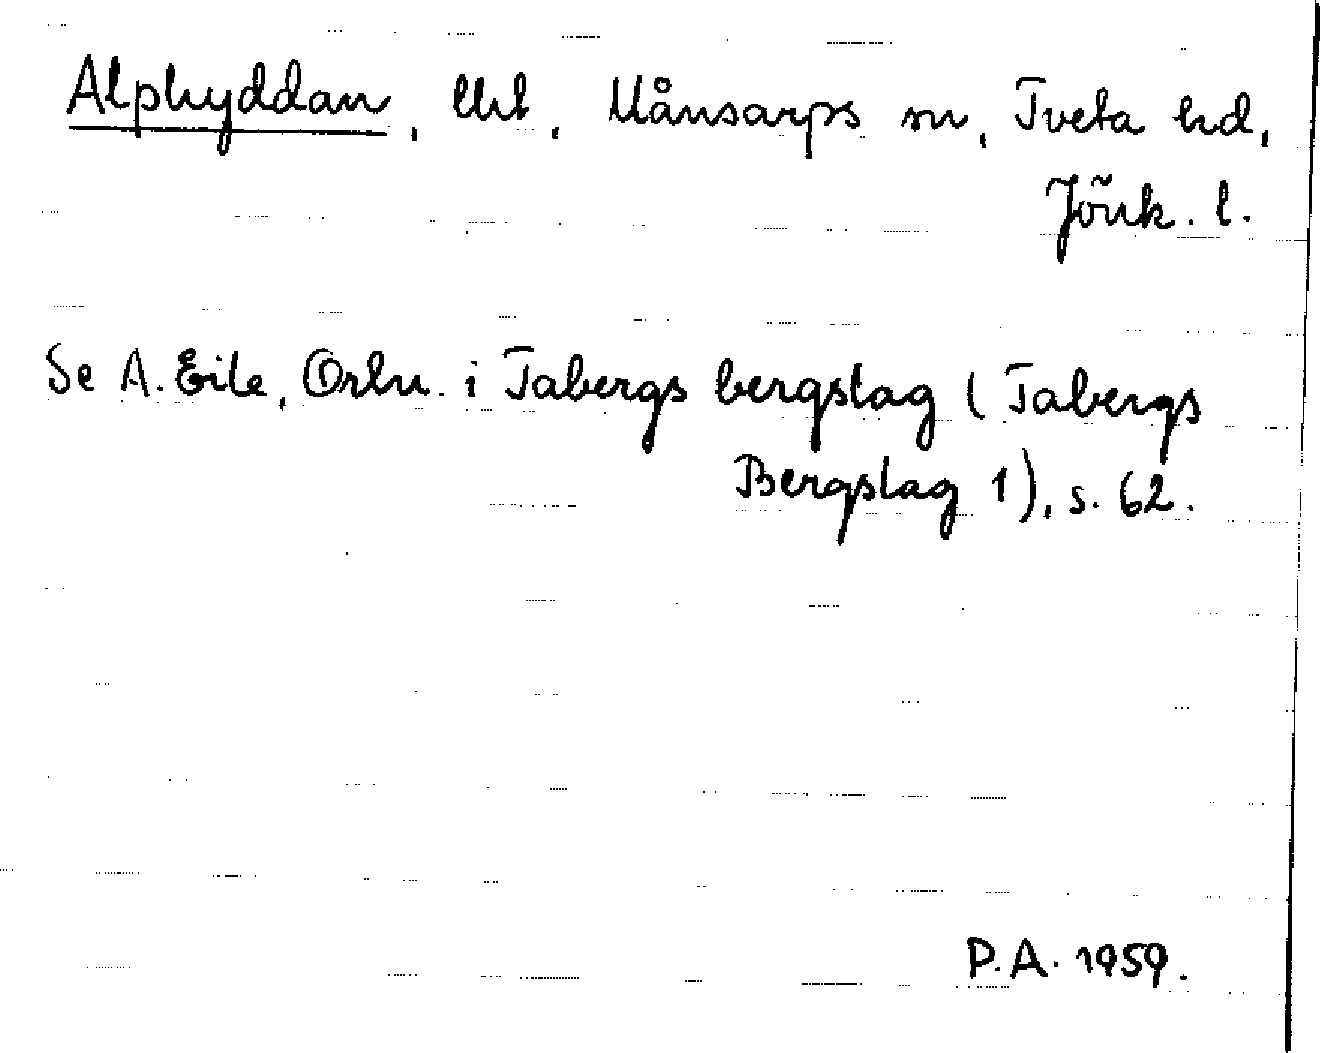 Alphyddan, lht, Månsarps sn, Tveta hd,
Jönk. l.
Se A. Eile, Ortn. i Tabergs bergslag (Tabergs
Bergslag 1), s. 62.
P.A. 1959.